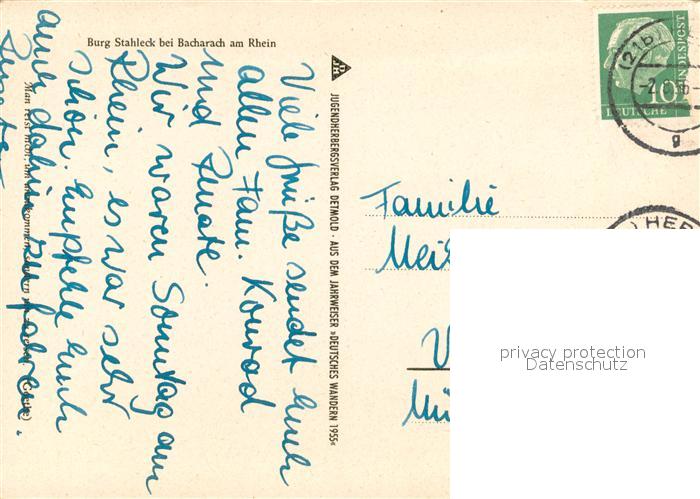 Burg Stahleck bei Bacharach am Rhein
Viele Grüße sendet Euch
allen Fam. Konrad
und Renate.
Wir waren Sonntag am
Rhein, es war sehr
schön. Empfehle Euch
auch dahin zu fahren.
Man reist nicht, um anzukommen, sondern um zu reisen. (Goethe)
JUGENDHERBERGSVERLAG DETMOLD · AUS DEM JAHRWEISER »DEUTSCHES WANDERN 1955«
DEUTSCHE BUNDESPOST
10
(21b)
g
HER
Familie
Meis
V
Mü
privacy protection
Datenschutz